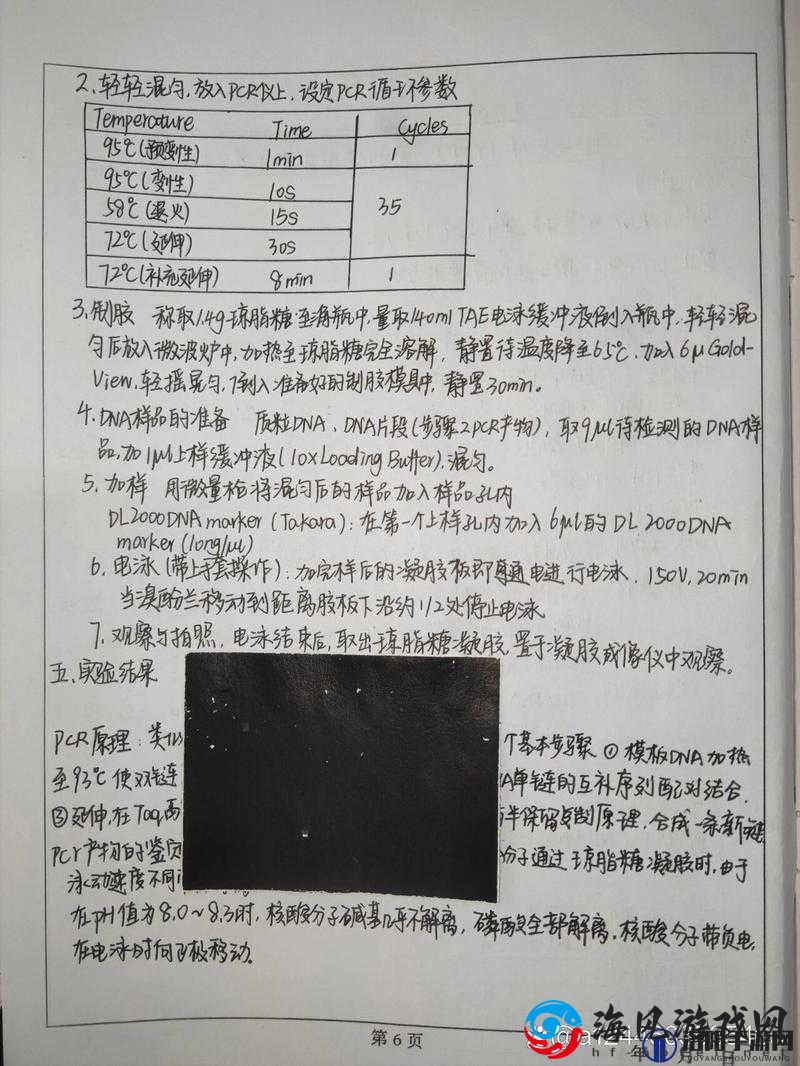 2、轻轻混匀,放入PCR仪上,设定PCR循环参数
Temperature Time Cycles
95℃(预变性) 1min 1
95℃(变性) 10s
58℃(退火) 15s 35
72℃(延伸) 30s
72℃(补充延伸) 8min 1
3、制胶 称取1.4g琼脂糖至海瓶中,量取140ml TAE电泳缓冲液倒入瓶中,轻轻混
匀后放入微波炉中,加热至琼脂糖完全溶解,静置待温度降至65℃,加入6μ Gold-
View,轻摇晃匀,倒入准备好的制胶模具中,静置30min。
4、DNA样品的准备 质粒DNA、DNA片段(步骤2PCR产物),取9μl待检测的DNA样
品,加1μl上样缓冲液(10xLoading Buffer),混匀。
5、加样 用微量枪将混匀后的样品加入样品孔内
DL2000DNA marker(Takara):在第一个上样孔内加入6μl的DL2000DNA
marker(10ng/μl)
6、电泳(带上手套操作):加完样后的凝胶板即通电进行电泳,150V,20min
当溴酚兰移动到距离胶板下沿约1/2处停止电泳
7、观察与拍照,电泳结束后,取出琼脂糖凝胶,置于凝胶成像仪中观察。
五、实验结果
PCR原理:类 个基本步骤①模板DNA加热
至93℃使双链 单链的互补序列配对结合.
③延伸,在Taq 半保留复制原理,合成一条新链
PCr产物的鉴 分子通过琼脂糖凝胶时,由于
泳动速度不同
在pH值为8.0~8.3时,核酸分子碱基几乎不解离,磷酸全部解离,核酸分子带负电,
在电泳时向正极移动.
第 6 页
海风游戏网
hf